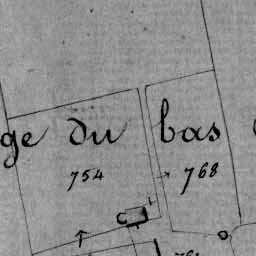 ge du bas
754 768
C